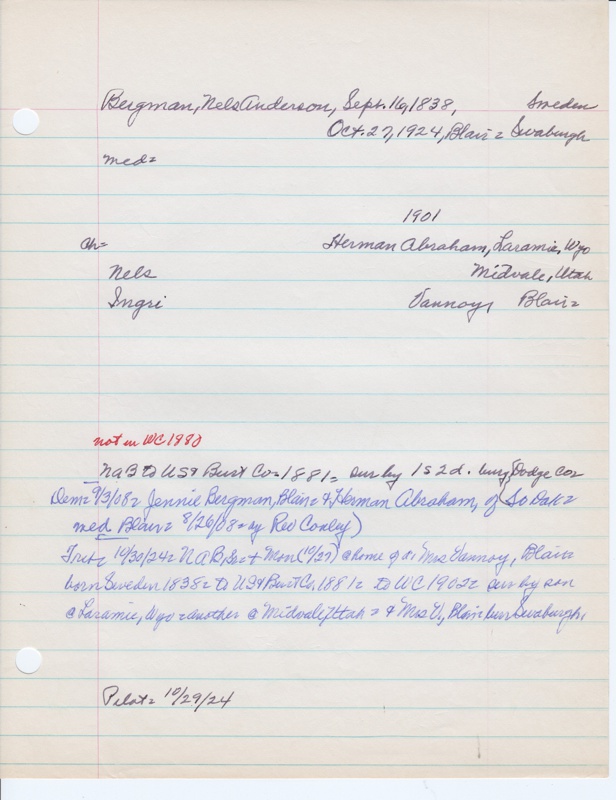 Bergman, Nels Anderson, Sept. 16, 1838, Sweden
Oct. 27, 1924, Blair = Swaburgh
med=
1901
ch= Herman Abraham, Laramie, Wyo
Nels Midvale, Utah
Ingri Vannoy, Blair=
not in WC 1980
NAB to US & Burt Co = 1881 = sur by 1 s 2 d. bury Dodge Co=
Dem= 9/3/08= Jennie Bergman, Blair= & Herman Abraham, of So Dak=
med Blair= 8/26/08= by Rev Conley)
Trib= 10/30/24= N A B, Mon (10/27) @ home of Mrs Vannoy, Blair=
born Sweden 1838= to US & Burt Co, 1881= to WC 1902= sur by son
@ Laramie, Wyo = another @ Midvale, Utah = & Mrs V., Blair= bur Swaburgh.
Pilot= 10/29/24